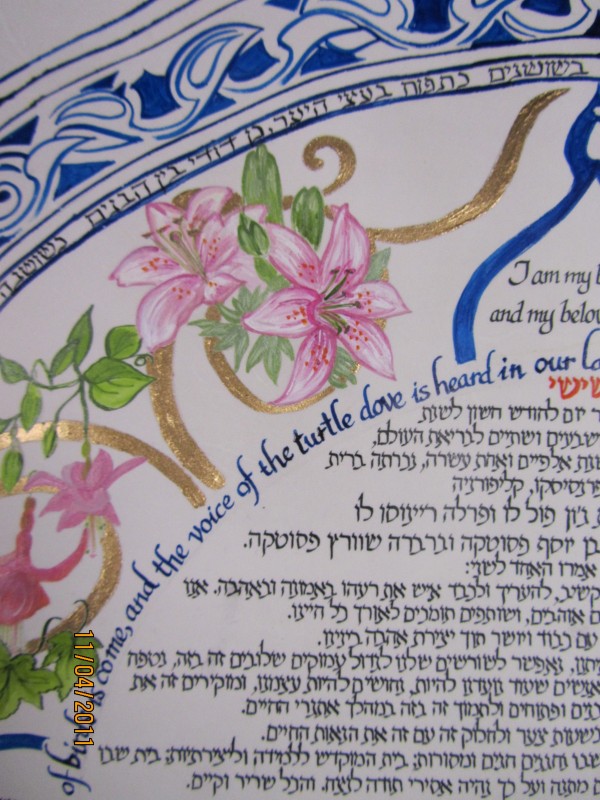 בשושנים כתפוח בעצי היער, כן דודי בין הבנים כשושנה
I am my
and my
of singing is come, and the voice of the turtle dove is heard in our
שישי
יום לחודש חשון לשנת
שבעים ושתים לבריאת העולם,
שנת אלפיים ואחת עשרה, נכרתה ברית
פרנסיסקו, קליפורניה
ג'ון פול לו ופרלה ריינוסו לו
בן יוסף פסוטקה וברברה שוורץ פסוטקה.
אמרו האחד לשני:
להעריך ולכבד איש את רעהו באמונה ובאהבה. אנו
אוהבים, ושותפים תומכים לאורך כל חיינו.
עם כבוד ויושר תוך יצירת אהבה בינינו.
נאפשר לשורשים שלנו לגדול עמוקים שלובים זה בזה, נטפח
אנשים שעוד נועדנו להיות, נחושים להיות עצמנו, ומוקירים זה את
ופתוחים ולתמוך זה בזה במהלך אתגרי החיים.
בשעות צער ולחלוק זה עם זה את הנאות החיים.
שבו נחגגים חגים ומסורות; בית המוקדש ללמידה וליצירתיות; בית שבו
מתנה ועל כך נהיה אסירי תודה לנצח. והכל שריר וקיים.
11/04/2011